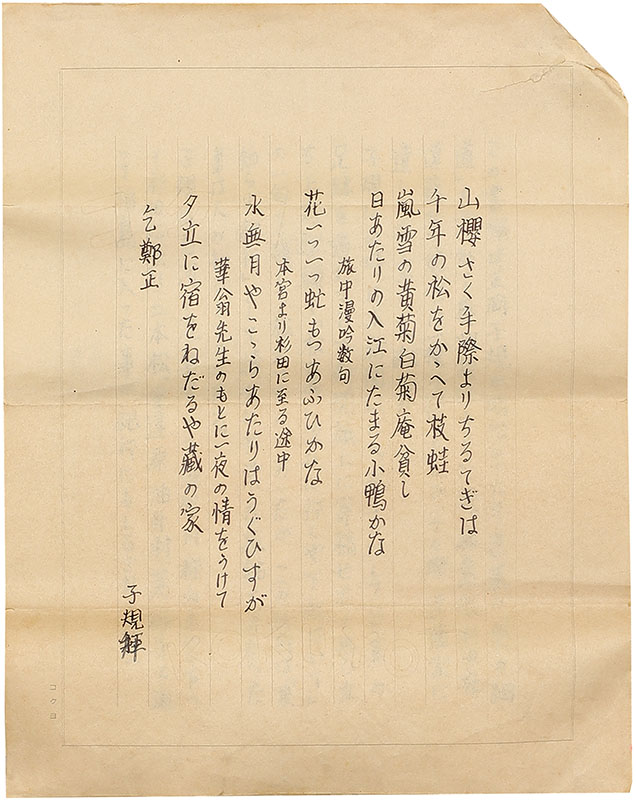 山櫻さく手際よりちるてぎは
千年の松をかゝへて枝蛙
嵐雪の黄菊白菊庵貧し
日あたりの入江にたまる小鴨かな
旅中漫吟数句
花一つ一つ虻もつあふひかな
本宮より杉田に至る途中
水無月やこゝらあたりはうぐひすが
華翁先生のもとに一夜の情をうけて
夕立に宿をねだるや藏の家
乞鄭正
子規
コクヨ